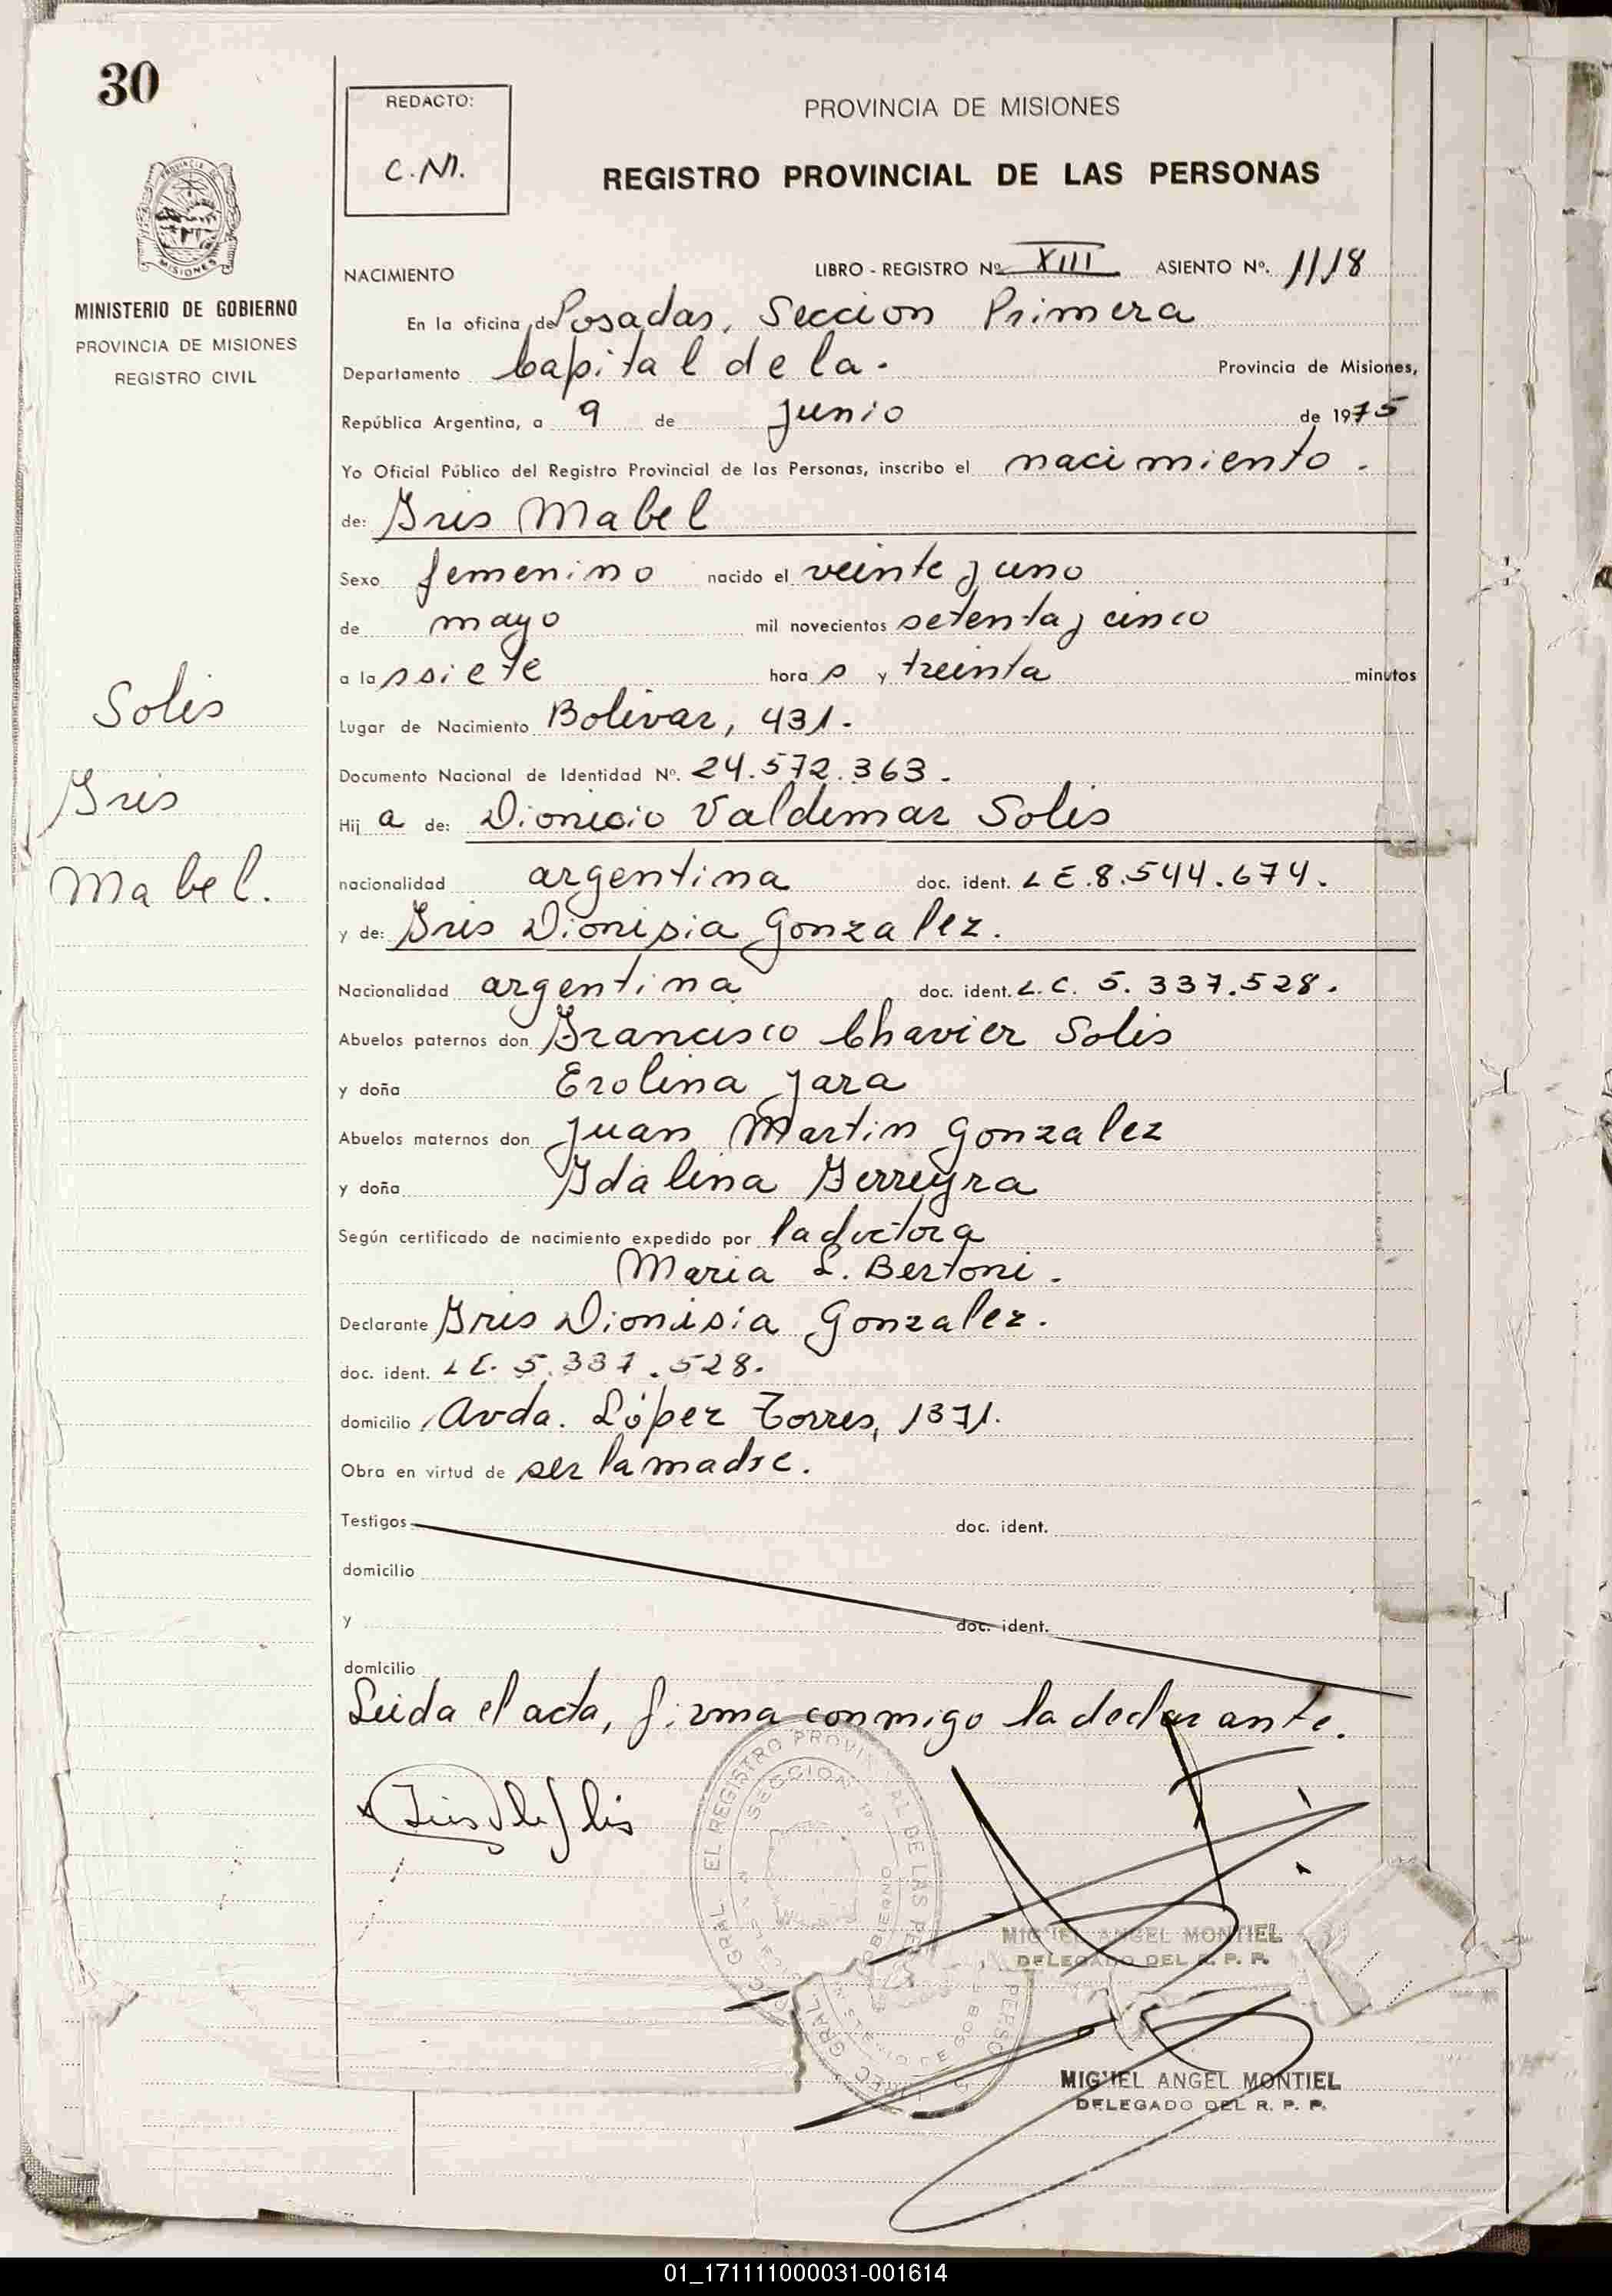 30
REDACTO:
C.M.
PROVINCIA DE MISIONES
REGISTRO PROVINCIAL DE LAS PERSONAS
MISIONES
MINISTERIO DE GOBIERNO
PROVINCIA DE MISIONES
REGISTRO CIVIL
NACIMIENTO LIBRO - REGISTRO Nº XIII ASIENTO Nº. 1118
En la oficina de Posadas, Seccion Primera
Departamento Capital de la. Provincia de Misiones,
República Argentina, a 9 de junio de 1975
Yo Oficial Público del Registro Provincial de las Personas, inscribo el nacimiento.
de: Iris Mabel
Sexo femenino nacido el veinte y uno
de mayo mil novecientos setenta y cinco
a la s siete hora s y treinta minutos
Solis
Lugar de Nacimiento Bolivar, 431.
Documento Nacional de Identidad Nº. 24.572.363.
Iris
Hij a de: Dionicio Valdemar Solis
Mabel.
nacionalidad argentina doc. ident. L E. 8.544.674.
y de: Iris Dionisia Gonzalez.
Nacionalidad argentina doc. ident. L. C. 5.337.528.
Abuelos paternos don Francisco Chavier Solis
y doña Erolina Jara
Abuelos maternos don Juan Martin Gonzalez
y doña Idalina Ferreyra
Según certificado de nacimiento expedido por la doctora
Maria L. Bertoni.
Declarante Iris Dionisia Gonzalez.
doc. ident. L E. 5.337.528.
domicilio Avda. López Torres, 1371.
Obra en virtud de ser la madre.
Testigos doc. ident.
domicilio
y doc. ident.
domicilio
Leida el acta, firma conmigo la declarante.
MIGUEL ANGEL MONTIEL
DELEGADO DEL R. P. P.
MIGUEL ANGEL MONTIEL
DELEGADO DEL R. P. P.
01_171111000031-001614